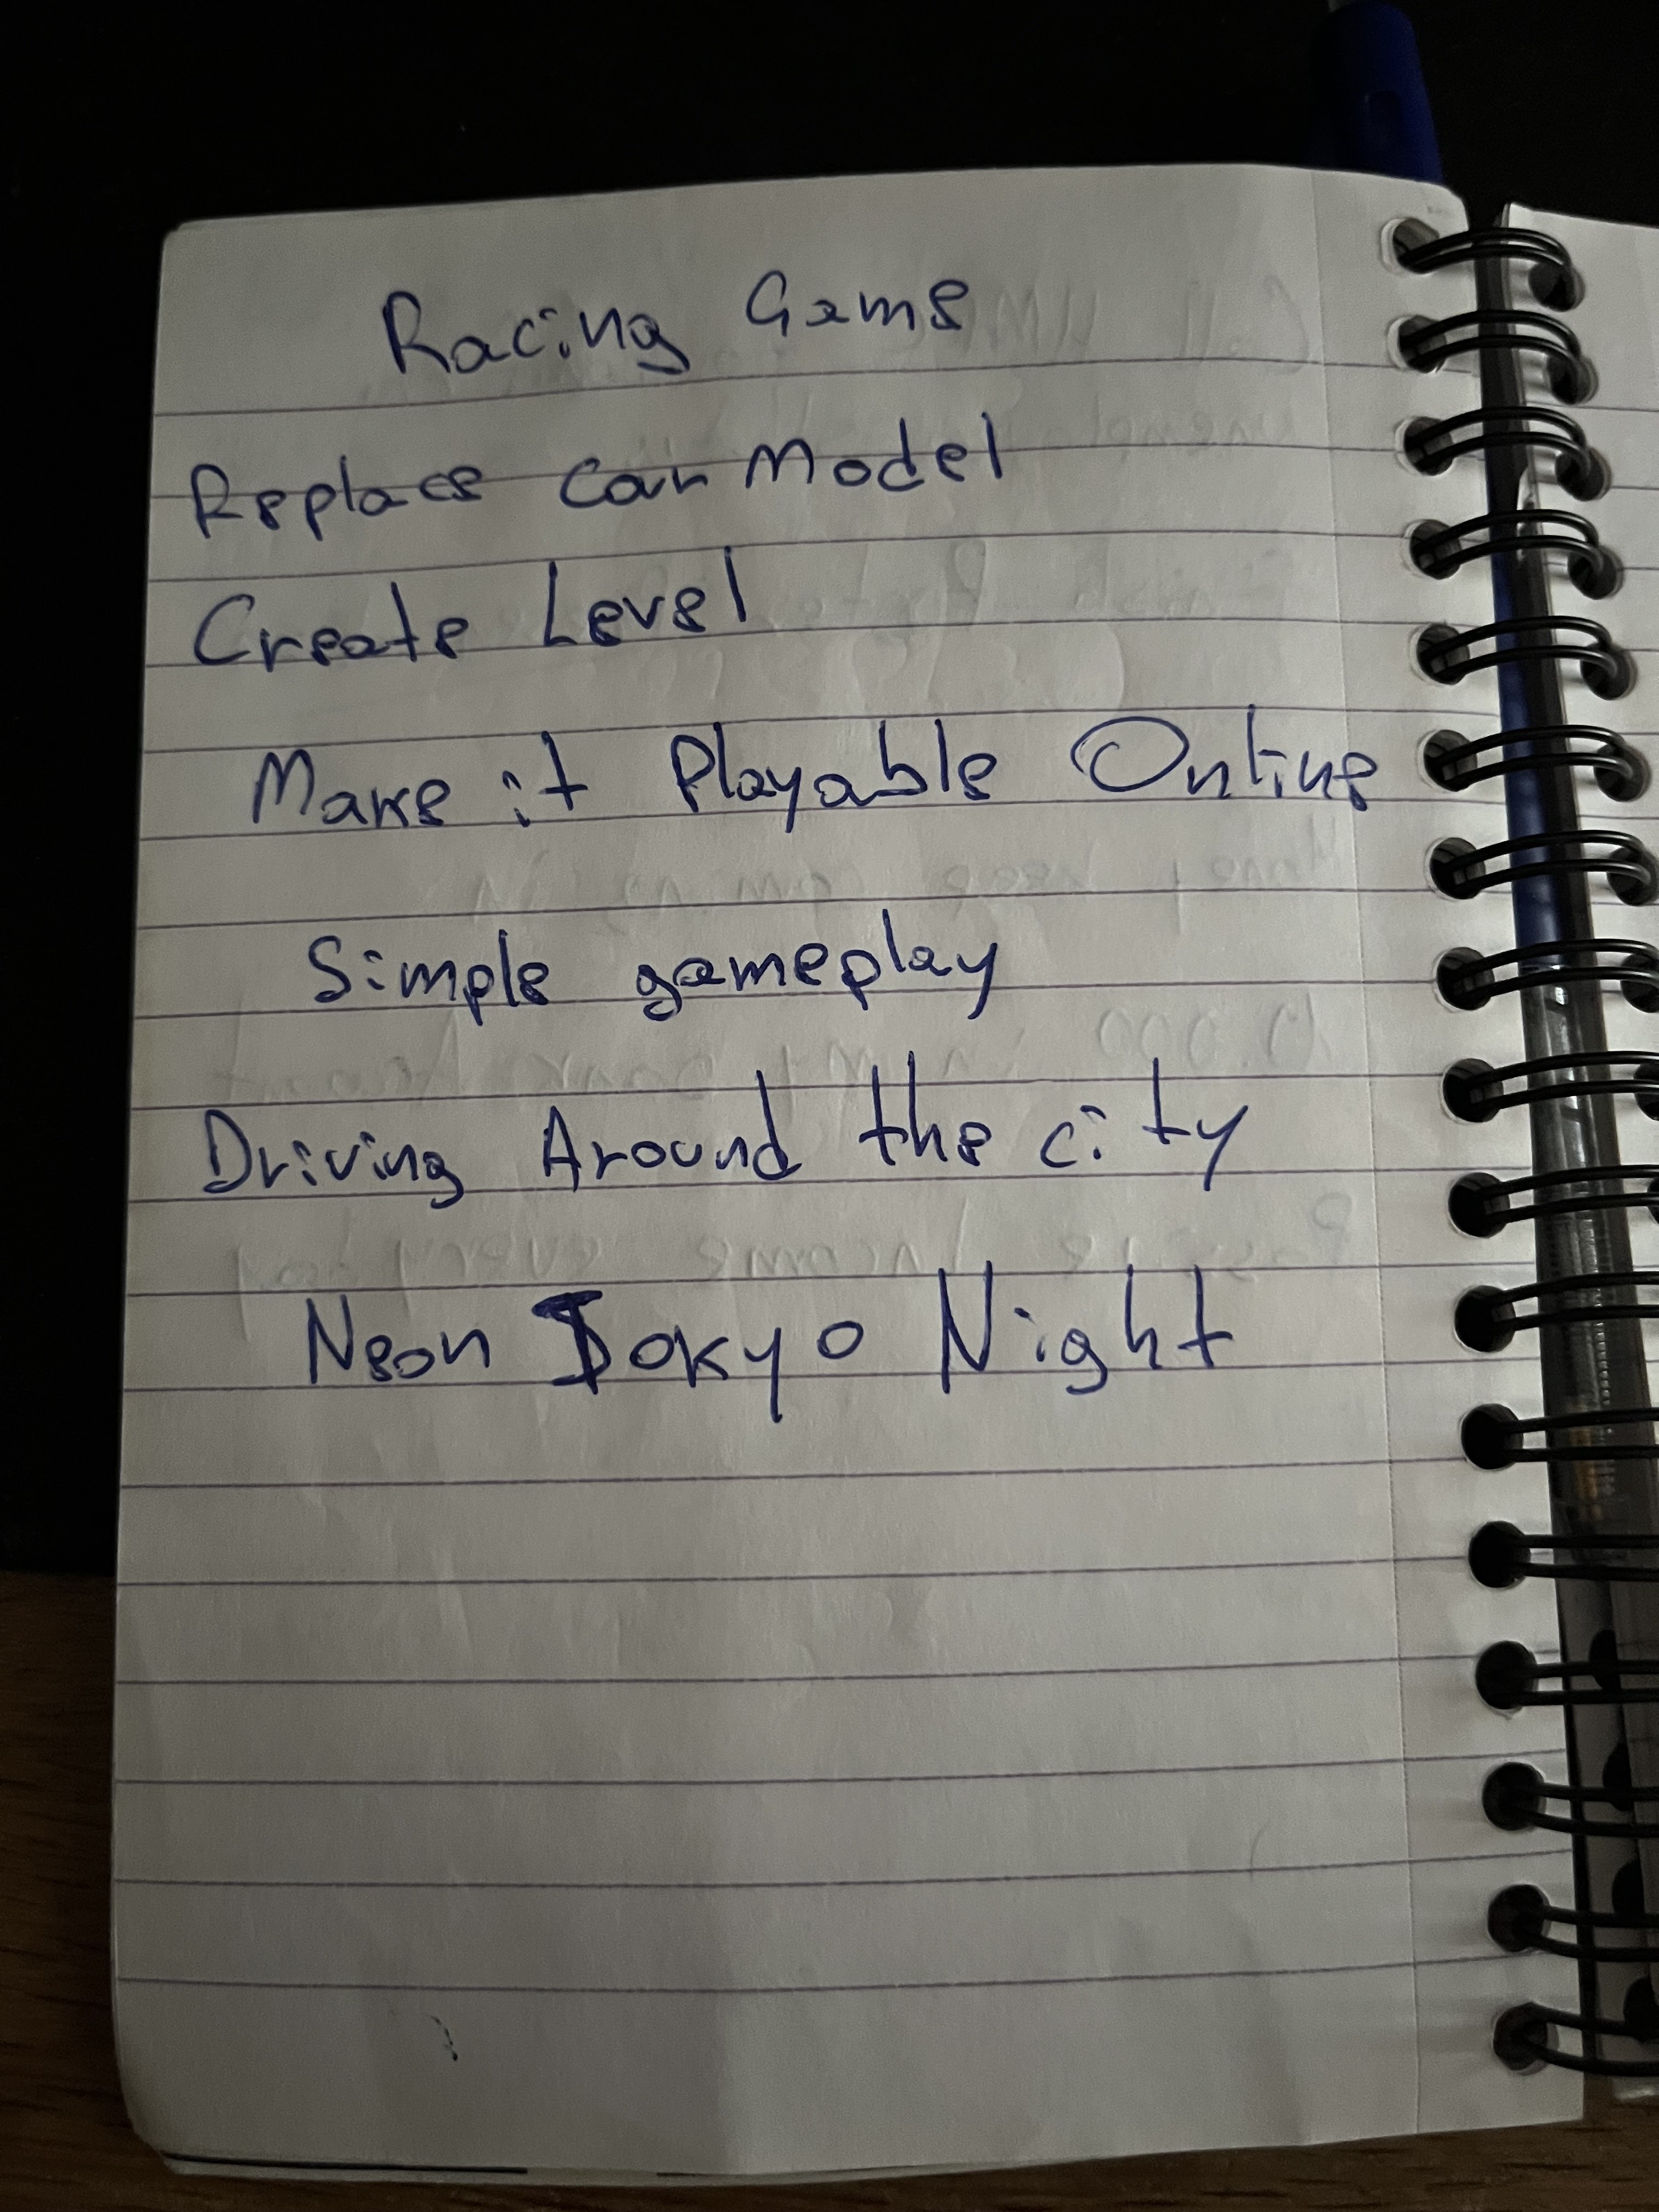 Racing Game
Replace Car Model
Create Level
Make it Playable Online
Simple gameplay
Driving Around the city
Neon Tokyo Night